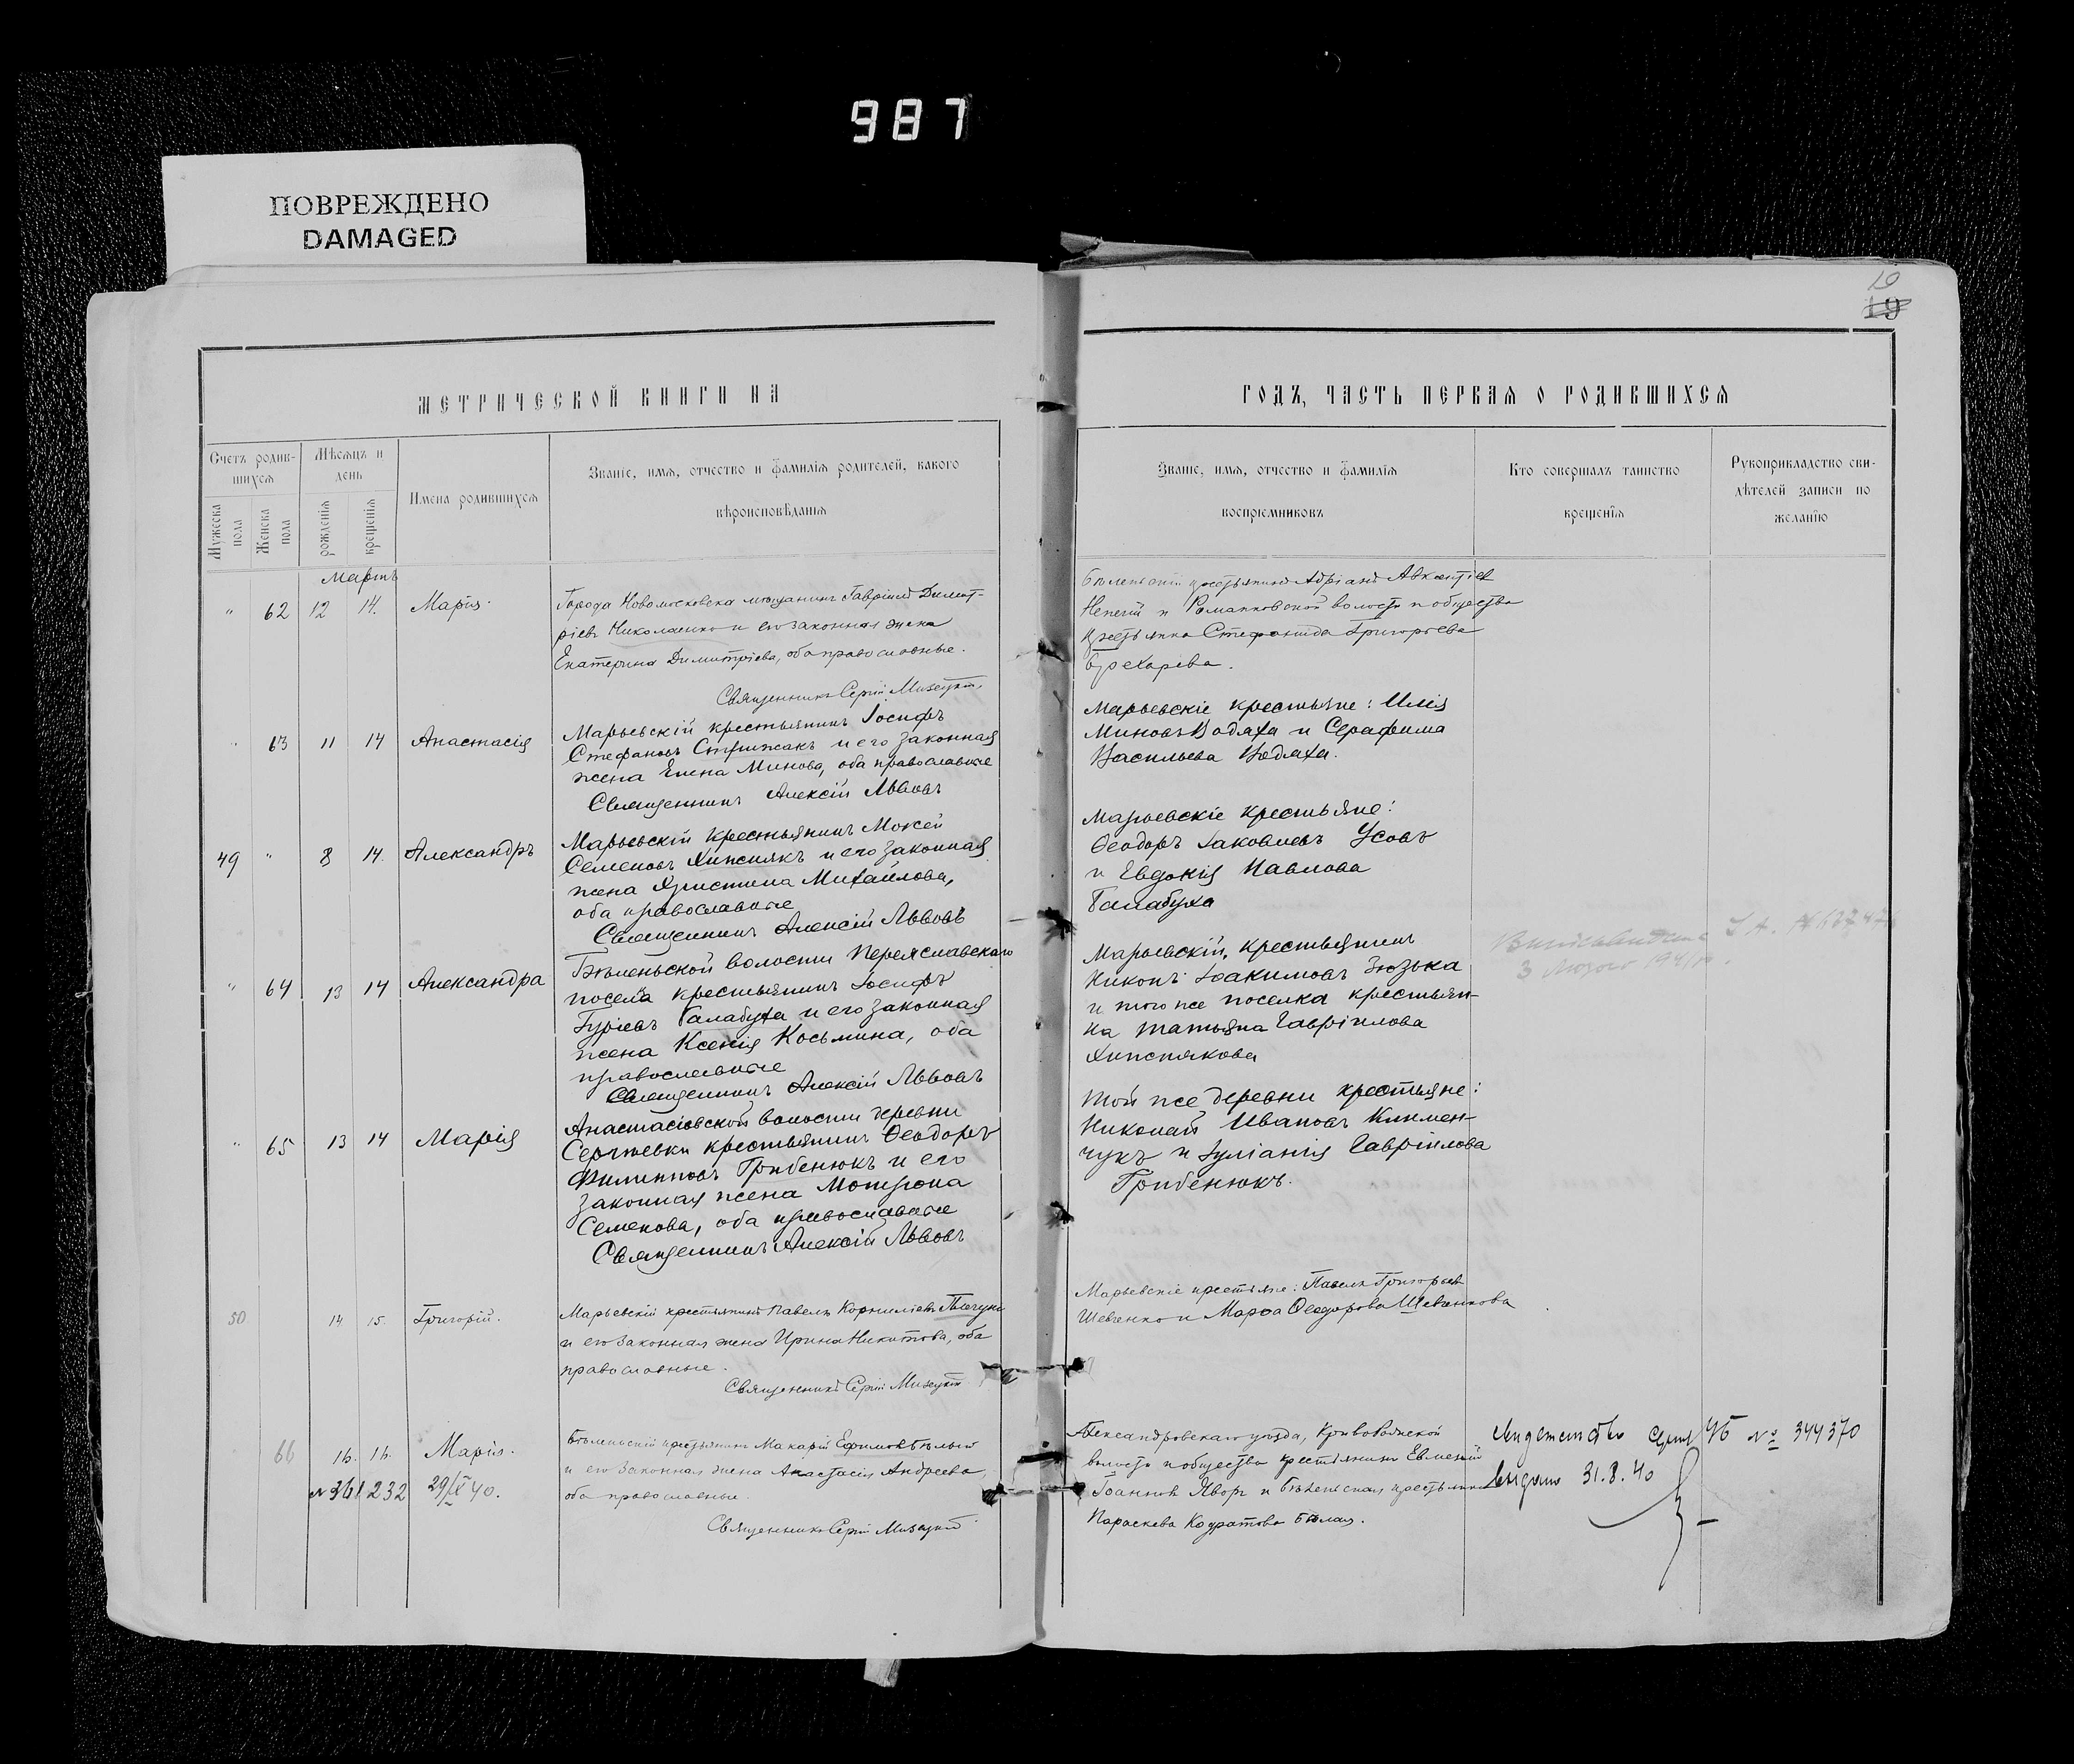 987
ПОВРЕЖДЕНО
DAMAGED
19
МЕТРИЧЕСКОЙ КНИГИ НА
Счетъ родив-
шихся
Мѣсяцъ и
день
Имена родившихся
Званіе, имя, отчество и фамилія родителей, какого
вѣроисповѣданія
Мужеска
пола
Женска
пола
рожденія
крещенія
Мартъ
" 62 12 14. Марія.
Города Новомосковска мѣщанинъ Гавріилъ Димит-
ріевъ Николаенко и его законная жена
Екатерина Димитріева, оба православные.
Священникъ Сергій Мизецкій
" 63 11 14 Анастасія
Марьевскій крестьянинъ Іосифъ
Стефановъ Стрижакъ и его законная
жена Елена Минова, оба православные
Священникъ Алексій Львовъ
49 " 8 14. Александръ
Марьевскій крестьянинъ Моисей
Семеновъ Хижнякъ и его законная
жена Христина Михайлова,
оба православные
Священникъ Алексій Львовъ
" 64 13 14 Александра
Бѣленьской волости Переяславскаго
поселка крестьянинъ Іосифъ
Гуріевъ Галабуха и его законная
жена Ксенія Косьмина, оба
православные
Священникъ Алексій Львовъ
" 65 13 14 Марія
Анастасіевской волости деревни
Сергѣевки крестьянинъ Ѳеодоръ
Филипповъ Грибенюкъ и его
законная жена Мотрона
Семенова, оба православные
Священникъ Алексій Львовъ
50 14 15. Григорій.
Марьевскій крестьянинъ Павелъ Корниліевъ
и его законная жена Ирина Никитова, оба
православные.
Священникъ Сергій Мизецкій
66 16. 16. Марія.
Бѣленьскій крестьянинъ Макарій Ефимовъ Бѣлый
и его законная жена Анастасія Андреева,
оба православные.
Священникъ Сергій Мизецкій
№ 361232 29/IX 40.
ГОДЪ, ЧАСТЬ ПЕРВАЯ О РОДИВШИХСЯ
Званіе, имя, отчество и фамилія
воспріемниковъ
Кто совершалъ таинство
крещенія
Рукоприкладство сви-
дѣтелей записи по
желанію
Бѣленьскій крестьянинъ Адріанъ Авксентіевъ
и волости и общества
крестьянка Стефанида Григорьева
Марьевскіе крестьяне: Илія
Миновъ Водяха и Серафима
Васильева Водяха.
Марьевскіе крестьяне:
Ѳеодоръ Іаковлевъ Усовъ
и Евдокія Павлова
Галабуха
Марьевскій, крестьянинъ
Никонъ Іоакимовъ Зюзька
и того же поселка крестьян-
ка Татьяна Гавріилова
Хижнякова
3 1941
Той же деревни крестьяне:
Николай Ивановъ Климен-
чукъ и Іуліанія Гавріилова
Грибенюкъ.
Марьевскіе крестьяне: Павелъ Григорьевъ
Шевченко и Марѳа Ѳеодорова Шевченкова
Александровскаго уѣзда,
волости и общества крестьянинъ Евменій
Іоанновъ Яворъ и Бѣленьская крестьянка
Параскева Кодратова Бѣлая.
344370
31.8.40